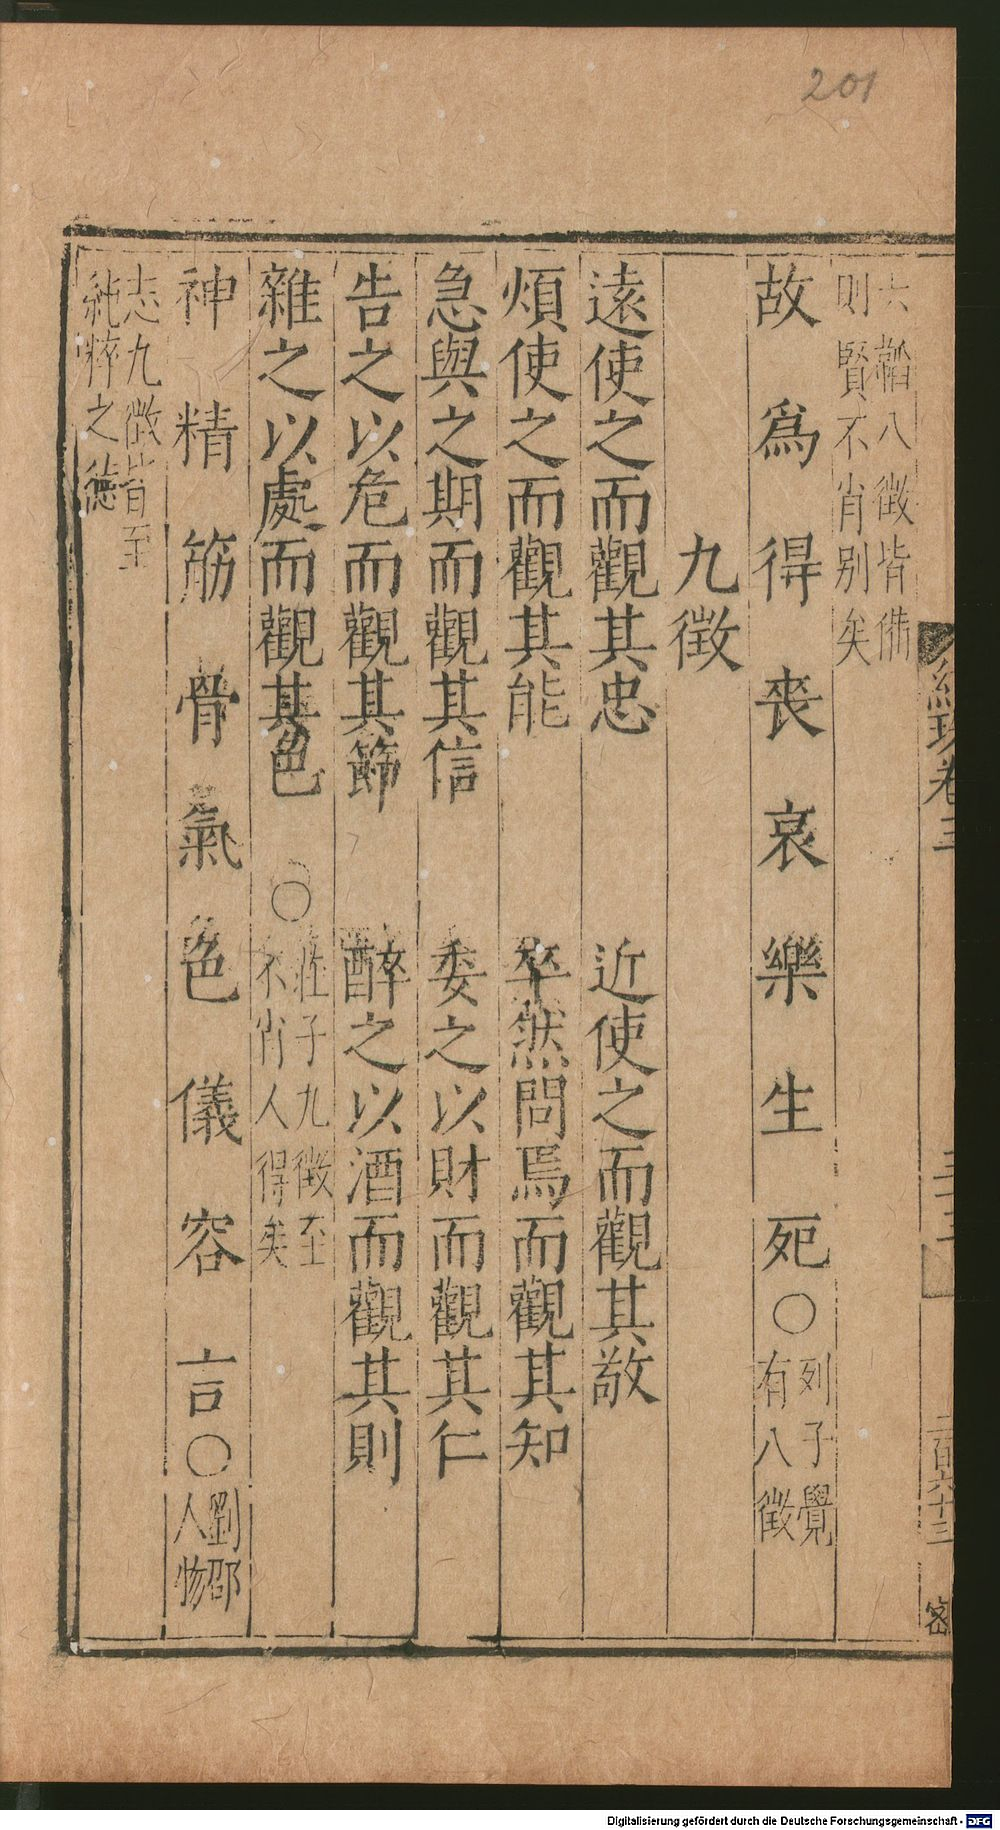 201
六韜八徵皆備
則賢不肖别矣
故爲得喪哀樂生死○列子覺
有八徵
九徵
遠使之而觀其忠 近使之而觀其敬
煩使之而觀其能 卒然問焉而觀其知
急與之期而觀其信 委之以財而觀其仁
告之以危而觀其節 醉之以酒而觀其則
雜之以處而觀其色 ○莊子九徵至
不肖人得矣
神精筋骨氣色儀容言○劉邵
人物
志九徵皆至
純粹之德
卷三
二百六十三
Digitalisierung gefördert durch die Deutsche Forschungsgemeinschaft - DFG